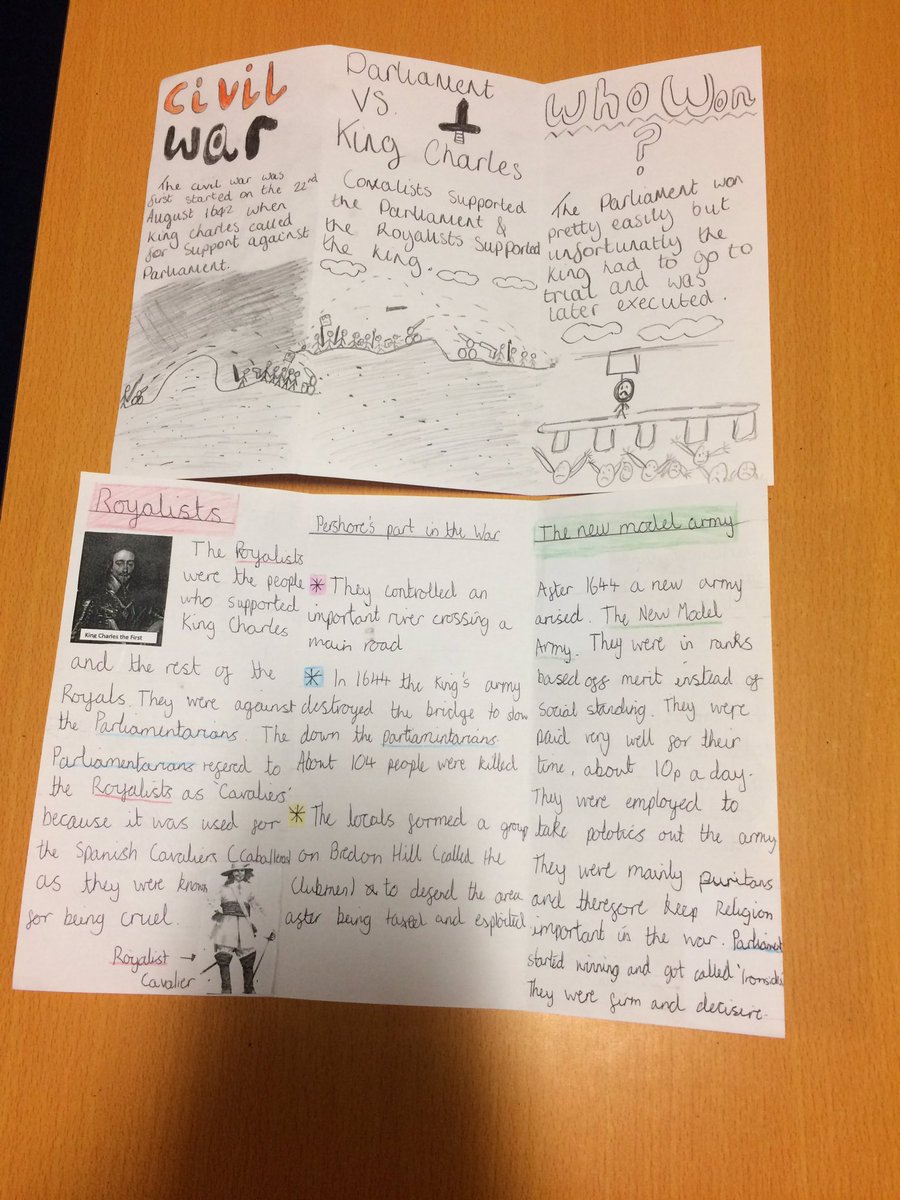 Civil
War
The civil war was
first started on the 22nd
August 1642 when
King charles called
for support against
Parliament.
Parliament
VS.
King Charles
Conxalists supported
the Parliament &
the Royalists supported
the king.
Who Won
?
The Parliament won
pretty easily but
unfortunatly the
King had to go to
trial and was
later executed.
Royalists
King Charles the First
The Royalists
were the people
who supported
King Charles
and the rest of the
Royals. They were against
the Parliamentarians. The
Parliamentarians refered to
the Royalists as 'Cavaliers'
because it was used for
the Spanish Cavaliers (Caballeros)
as they were known
for being cruel.
Royalist →
Cavalier
Pershore's part in the War
* They controlled an
important river crossing a
main road
* In 1644 the King's army
destroyed the bridge to slow
down the parliamintarians.
About 104 people were killed
* The locals formed a group
on Bredon Hill (called the
Clubmen) to defend the area
after being taxed and exploited
The new model army
After 1644 a new army
arised. The New Model
Army. They were in ranks
based off merit instead of
social standing. They were
paid very well for their
time, about 10p a day.
They were employed to
take pololics out the army
They were mainly puritans
and therefore keep Religion
important in the war. Parliament
started winning and got called 'Ironsides'
They were firm and decisire.